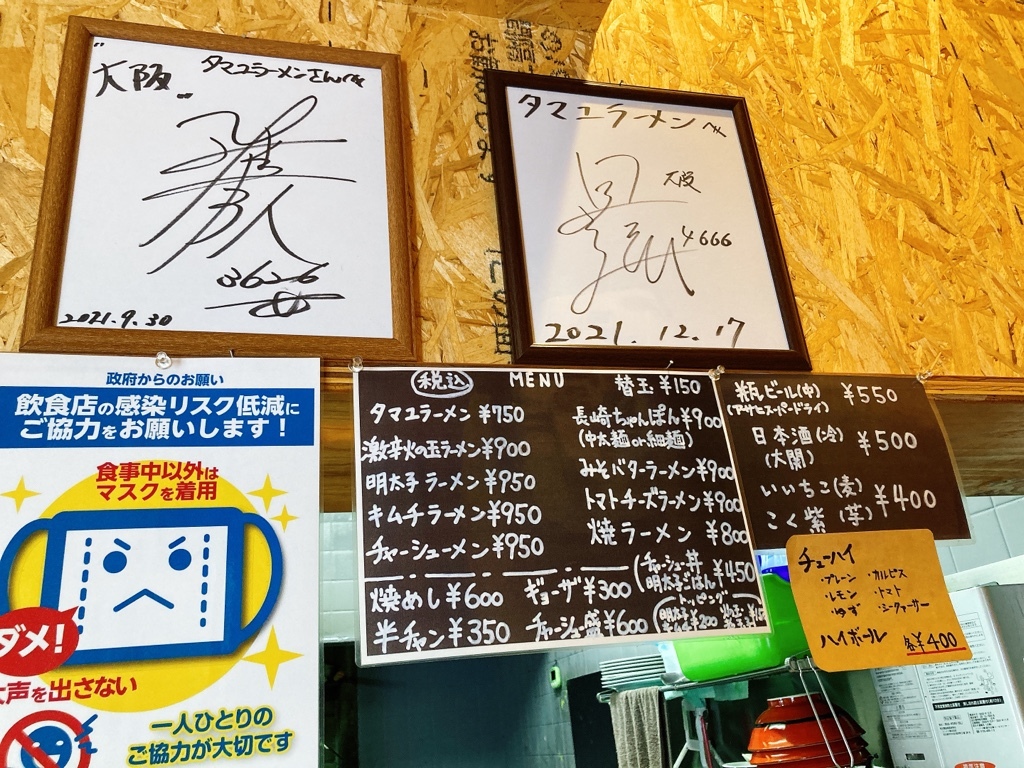 "大阪"
タマユラーメンさん江
3626
2021.9.30
タマユラーメンさん江
大阪
4666
2021.12.17
政府からのお願い
飲食店の感染リスク低減に
ご協力をお願いします！
食事中以外は
マスクを着用
ダメ！
大声を出さない
一人ひとりの
ご協力が大切です
税込 MENU
タマユラーメン ¥750
激辛火の玉ラーメン ¥900
明太子ラーメン ¥950
キムチラーメン ¥950
チャーシューメン ¥950
替玉 ¥150
長崎ちゃんぽん ¥900
(中太麺or細麺)
みそバターラーメン ¥900
トマトチーズラーメン ¥900
焼ラーメン ¥800
焼めし ¥600
半チャン ¥350
ギョーザ ¥300
チャーシュー盛 ¥600
チャーシュー丼
明太子ごはん ¥450
トッピング
明太子
¥200
瓶ビール(中) ¥550
(アサヒスーパードライ)
日本酒(冷) ¥500
(大関)
いいちこ(麦)
こく紫(芋) ¥400
チューハイ
・プレーン ・カルピス
・レモン ・トマト
・ゆず ・シークヮーサー
ハイボール 各¥400